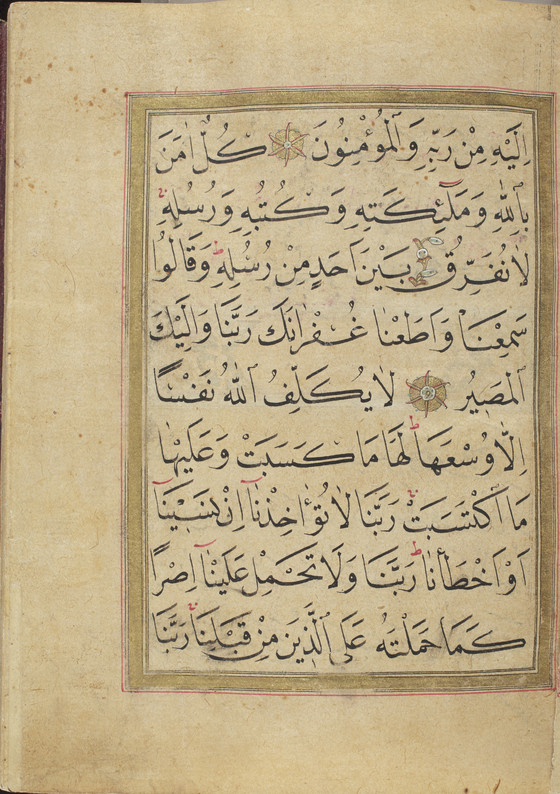 اِلَيْهِ مِنْ رَبِّهِ وَالْمُؤْمِنُونَ كُلٌّ اٰمَنَ
بِاللّٰهِ وَمَلٰٓئِكَتِهٖ وَكُتُبِهٖ وَرُسُلِهٖ
لَا نُفَرِّقُ بَيْنَ اَحَدٍ مِنْ رُسُلِهٖ وَقَالُوا
سَمِعْنَا وَاَطَعْنَا غُفْرَانَكَ رَبَّنَا وَاِلَيْكَ
الْمَصِيرُ لَا يُكَلِّفُ اللّٰهُ نَفْسًا
اِلَّا وُسْعَهَا لَهَا مَا كَسَبَتْ وَعَلَيْهَا
مَا اكْتَسَبَتْ رَبَّنَا لَا تُؤَاخِذْنَٓا اِنْ نَسِيْنَٓا
اَوْ اَخْطَأْنَا رَبَّنَا وَلَا تَحْمِلْ عَلَيْنَٓا اِصْرًا
كَمَا حَمَلْتَهُ عَلَى الَّذِينَ مِنْ قَبْلِنَا رَبَّنَا